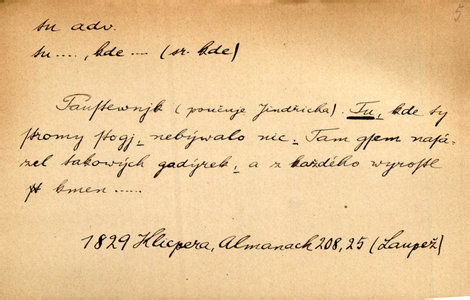 tu adv.
tu ...., kde .... (sr. kde)
Paustewnjk (poučuje Jindřicha). Tu, kde ty
stromy stogj, nebýwalo nic. Tam gsem nasá-
zel takowých gadýrek, a z každého wyrostl
kmen .....
1829 Klicpera, Almanach 208, 25 (Laupež)